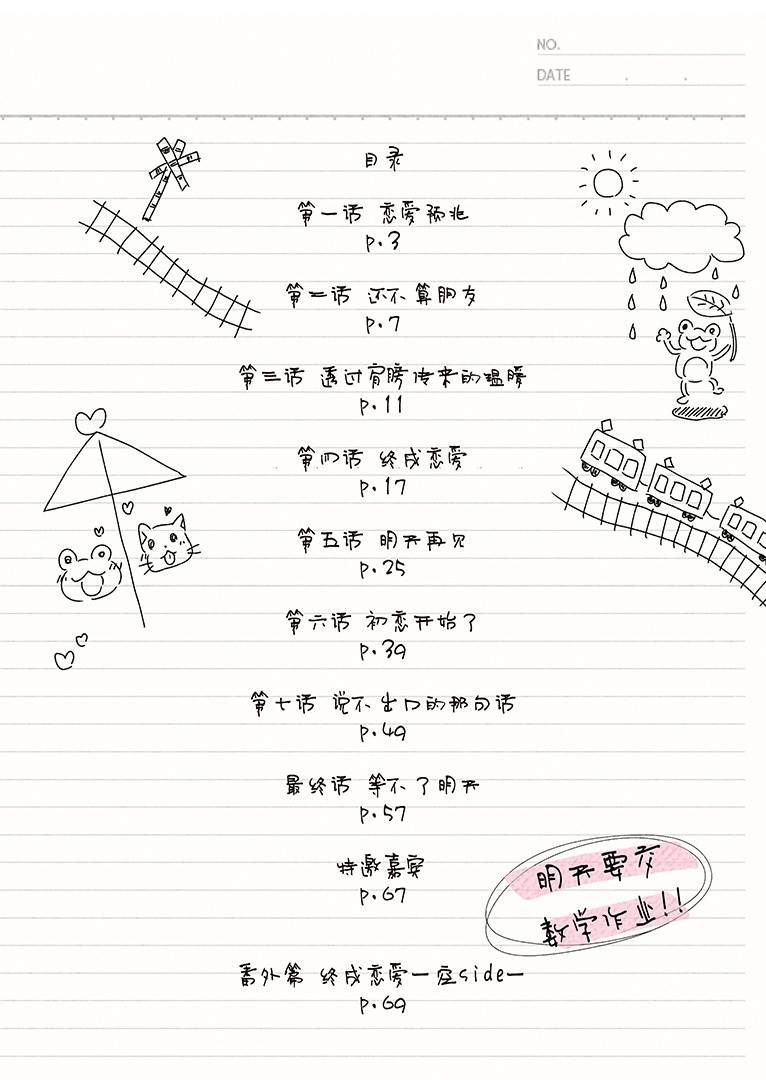 NO.
DATE . .
目录
第一话 恋爱预兆
p.3
第二话 还不算朋友
p.7
第三话 透过肩膀传来的温暖
p.11
第四话 终成恋爱
p.17
第五话 明天再见
p.25
第六话 初恋开始了
p.39
第七话 说不出口的那句话
p.49
最终话 等不了明天
p.57
特邀嘉宾
p.67
明天要交
数学作业!!
番外篇 终成恋爱—side—
p.69